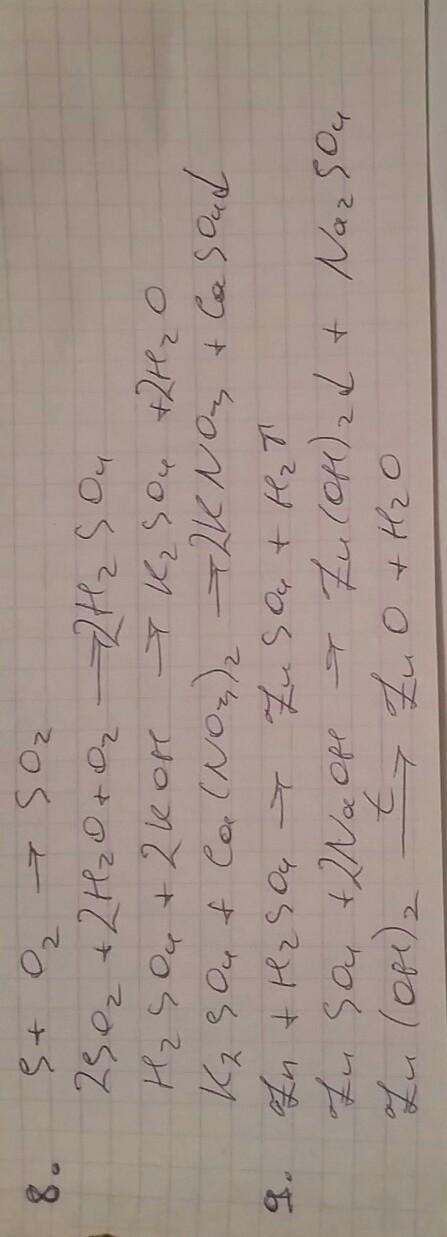 8. S + O₂ → SO₂
2SO₂ + 2H₂O + O₂ → 2H₂SO₄
H₂SO₄ + 2KOH → K₂SO₄ + 2H₂O
K₂SO₄ + Ca(NO₃)₂ → 2KNO₃ + CaSO₄↓
9. Zn + H₂SO₄ → ZnSO₄ + H₂↑
ZnSO₄ + 2NaOH → Zn(OH)₂↓ + Na₂SO₄
Zn(OH)₂ —t→ ZnO + H₂O